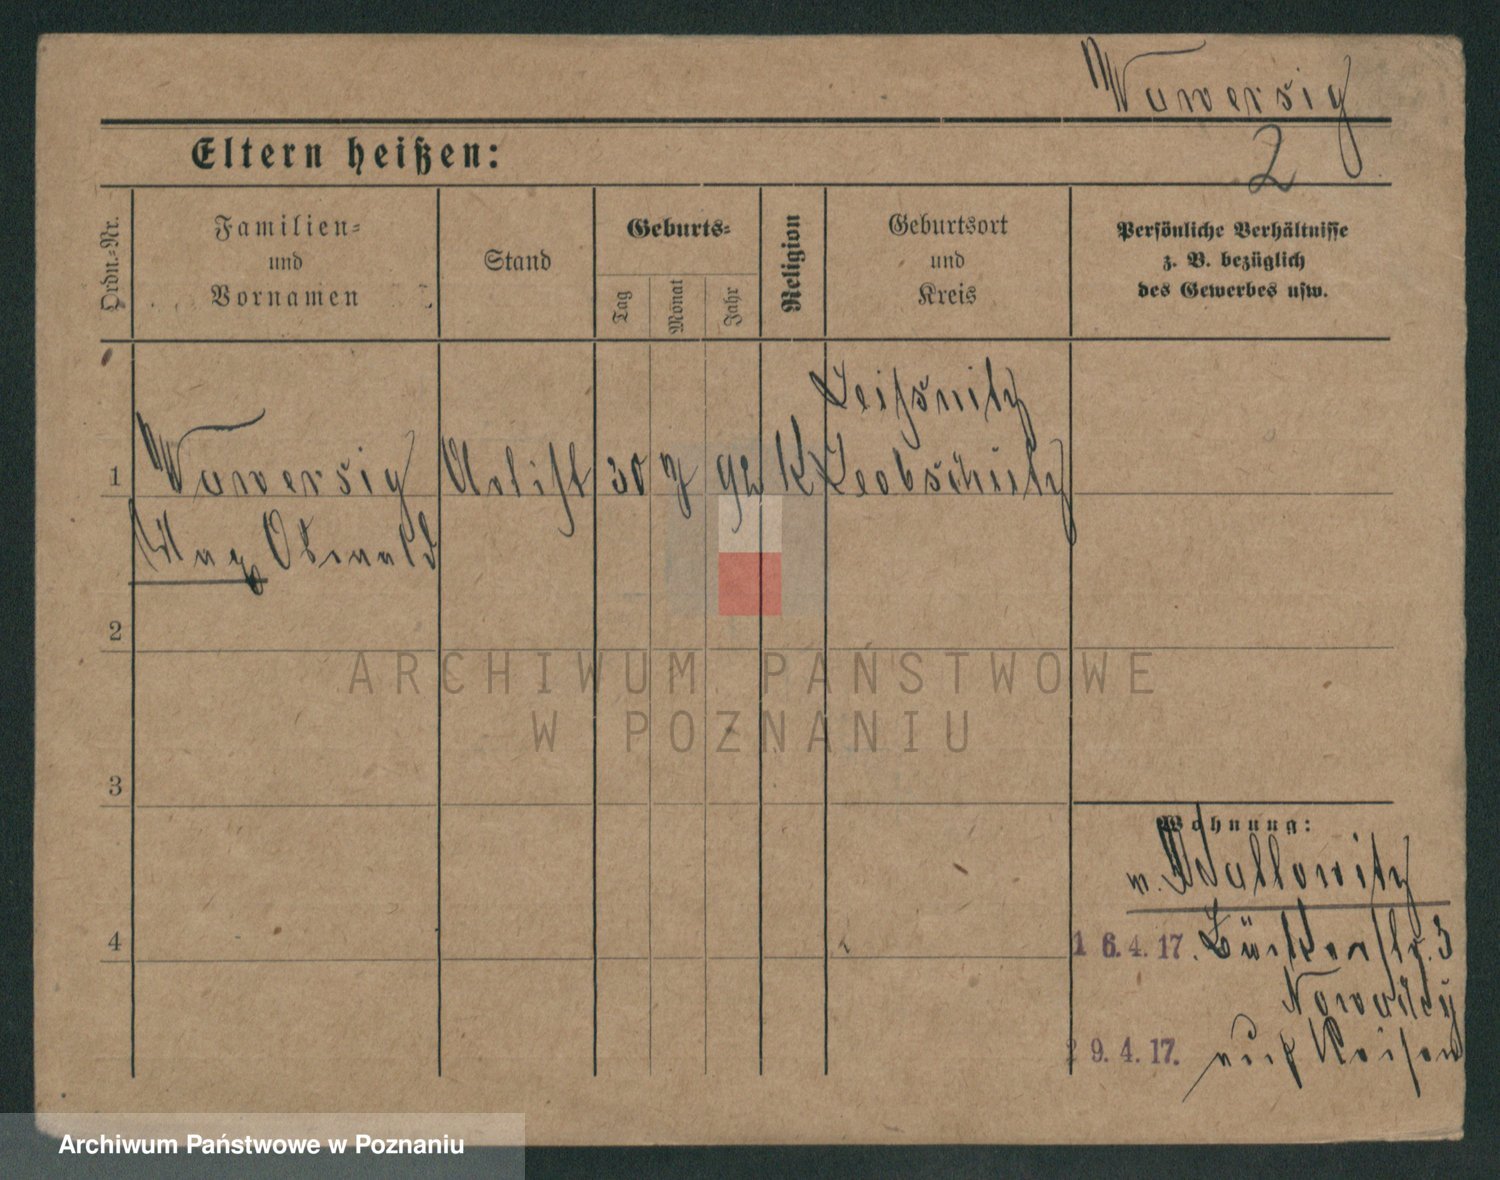 Wawersig
2
Eltern heißen:
Ordn.-Nr.
Familien-
und
Vornamen
Stand
Geburts-
Tag
Monat
Jahr
Religion
Geburtsort
und
Kreis
Persönliche Verhältnisse
z. B. bezüglich
des Gewerbes usw.
Leisnitz
1 Wawersig Artist 30 7 92 K Leobschütz
Max Oswald
2
ARCHIWUM PAŃSTWOWE
W POZNANIU
3
Wohnung:
w. Wallowitz
4
16.4.17. Bäckerstr. 3
29.4.17. auf Reisen
Archiwum Państwowe w Poznaniu